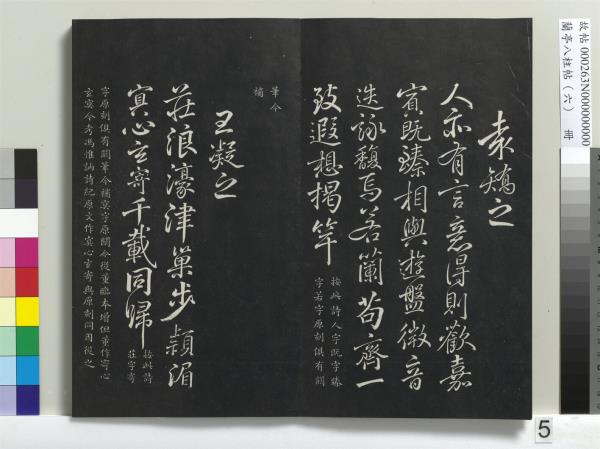 袁嶠之
人亦有言意得則歡嘉
賓既臻相與遊盤微音
迭詠馥焉若蘭苟齊一
致遐想揭竿
按此詩人字既字臻
字若字原刻俱有闕
筆今
補
王凝之
莊浪濠津巢步潁湄
冥心玄寄千載同歸
按此詩
莊字寄
字原刻俱有闕筆今補冥字原闕今從董臨本增但董作寄心
玄冥今考馮惟訥詩紀原文作冥心玄寄與原刻同因從之
故帖 000263N000000000
蘭亭八柱帖（六） 冊
5